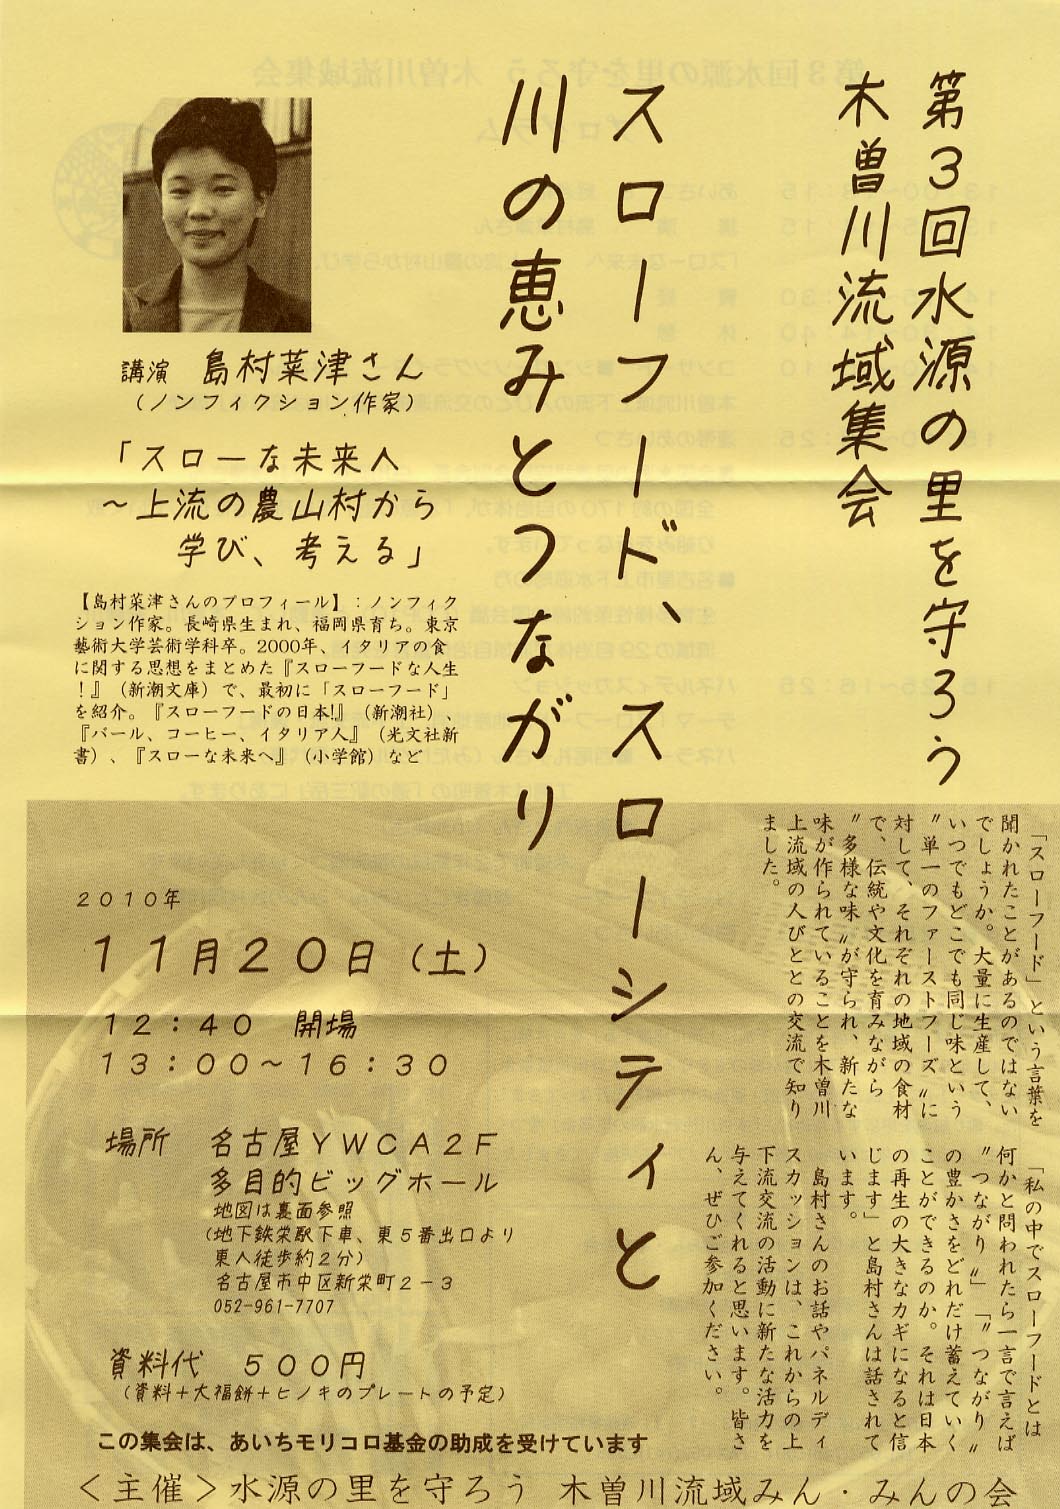 第３回水源の里を守ろう
木曽川流域集会
スローフード、スローシティと
川の恵みとつながり
講演　島村菜津さん
（ノンフィクション作家）
「スローな未来へ
～上流の農山村から
学び、考える」
【島村菜津さんのプロフィール】：ノンフィク
ション作家。長崎県生まれ、福岡県育ち。東京
藝術大学芸術学科卒。2000年、イタリアの食
に関する思想をまとめた『スローフードな人生
！』（新潮文庫）で、最初に「スローフード」
を紹介。『スローフードの日本!』（新潮社）、
『バール、コーヒー、イタリア人』（光文社新
書）、『スローな未来へ』（小学館）など
「スローフード」という言葉を
聞かれたことがあるのではない
でしょうか。大量に生産して、
いつでもどこでも同じ味という
〝単一のファーストフーズ〟に
対して、それぞれの地域の食材
で、伝統や文化を育みながら
〝多様な味〟が守られ、新たな
味が作られていることを木曽川
上流域の人びととの交流で知り
ました。
「私の中でスローフードとは
何かと問われたら一言で言えば
〝つながり〟」「〝つながり〟
の豊かさをどれだけ蓄えていく
ことができるのか。それは日本
の再生の大きなカギになると信
じます」と島村さんは話されて
います。
島村さんのお話やパネルディ
スカッションは、これからの上
下流交流の活動に新たな活力を
与えてくれると思います。皆さ
ん、ぜひご参加ください。
２０１０年
１１月２０日（土）
１２：４０　開場
１３：００～１６：３０
場所　名古屋ＹＷＣＡ２Ｆ
多目的ビッグホール
地図は裏面参照
（地下鉄栄駅下車、東５番出口より
東へ徒歩約２分）
名古屋市中区新栄町２－３
052-961-7707
資料代　５００円
（資料＋大福餅＋ヒノキのプレートの予定）
この集会は、あいちモリコロ基金の助成を受けています
＜主催＞水源の里を守ろう　木曽川流域みん・みんの会